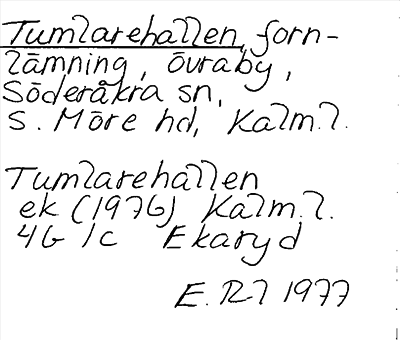 Tumlarehallen, forn-
lämning, Övraby,
Söderåkra sn,
S. Möre hd, Kalm.l.
Tumlarehallen
ek (1976) Kalm.l.
4G 1c Ekaryd
E. RJ 1977